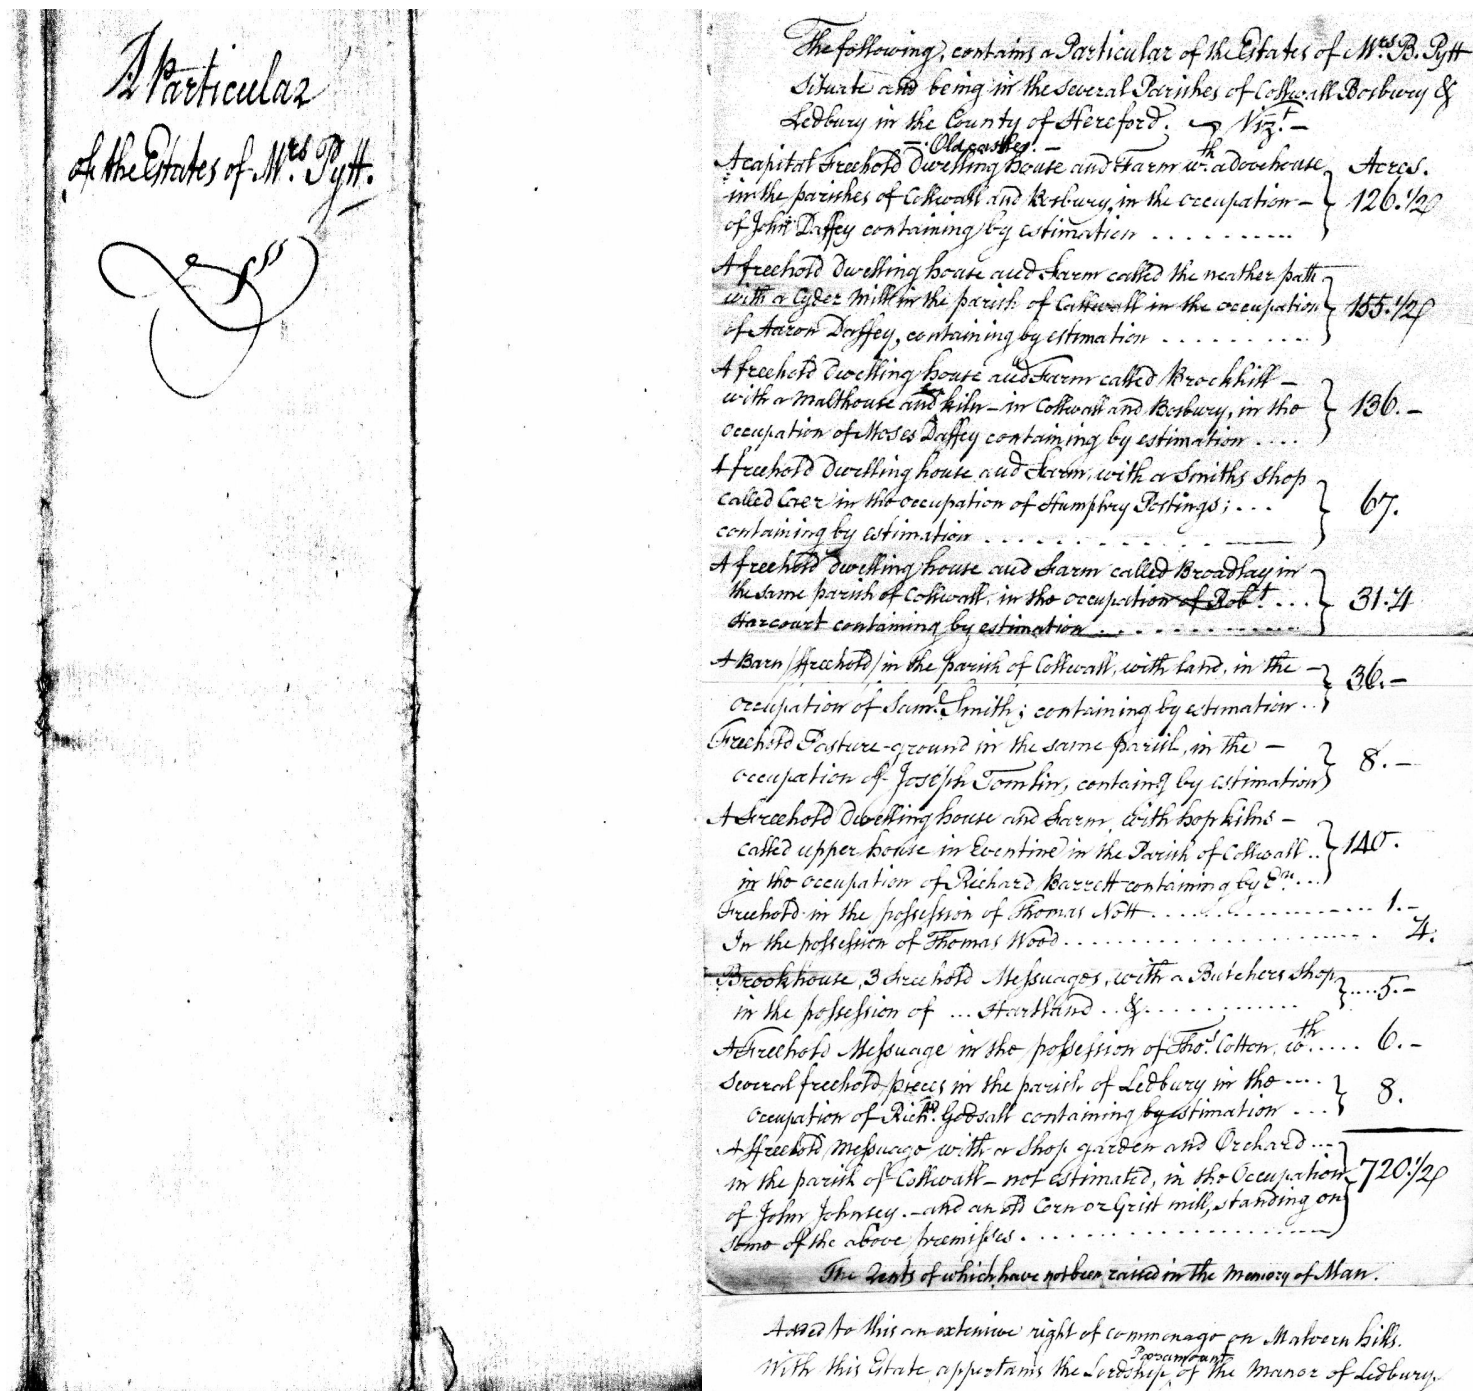 A Particular
of the Estates of Mrs. Pytt.
The following, contains a Particular of the Estates of Mrs. B. Pytt
Situate and being in the several Parishes of Collwall Bosbury &
Ledbury in the County of Hereford. Vizt. –
– Oldcastles. –
A capital Freehold Dwelling house and Farm wth. a dovehouse
in the parishes of Collwall and Bosbury, in the occupation –
of John Daffey containing by estimation . . . . . . . . . .
Acres.
126.1/2
A freehold Dwelling house and Farm called the neather path
with a Cyder Mill in the parish of Collwall in the occupation
of Aaron Daffey, containing by estimation . . . . . . . . .
155.1/2
A freehold Dwelling house and Farm called Brockhill –
with a Malthouse and kiln – in Collwall and Bosbury, in the
occupation of Moses Daffey containing by estimation . . . .
136. –
A freehold Dwelling house and Farm, with a Smiths shop
called Coer in the occupation of Humphry Postings; . . .
containing by estimation . . . . . . . . . .
67.
A freehold Dwelling house and Farm called Broadlay in
the same parish of Collwall, in the occupation of Robt. . . .
Harcourt containing by estimation . . . . . . . . .
31.4
A Barn /ffreehold/ in the parish of Collwall, with land, in the –
occupation of Saml. Smith; containing by estimation . .
36. –
Freehold Pasture-ground in the same parish, in the –
occupation of Joseph Tomlin, containg by estimation
8. –
A Freehold Dwelling house and Farm, with hop kilns –
called upper house in Eventine in the Parish of Collwall . .
in the occupation of Richard Barrett containing by En. . . .
140.
Freehold in the possession of Thomas Nott . . . . . . . . . . . . 1. –
In the possession of Thomas Wood . . . . . . . . . . . . 4.
Brookhouse, 3 Freehold Messuages, with a Butchers Shop
in the possession of ... Hartland . . & . . . . . . . . . .
. . . . 5. –
A Freehold Messuage in the possession of Thos. Cotton, wth . . . . . 6. –
Several freehold pieces in the parish of Ledbury in the . . . .
occupation of Richd. Godsall containing by estimation . . .
8.
A ffreehold Messuage with a shop garden and Orchard . . .
in the parish of Collwall – not estimated, in the Occupation
of John Johnsey. – and an old Corn or Grist mill, standing on
some of the above premisses . . . . . . . . . .
720.1/2
The Rents of which have not been raised in the Memory of Man.
Added to this an extensive right of commonage on Malvern hills.
Paramount
With this Estate appertains the Lordship of the Manor of Ledbury.